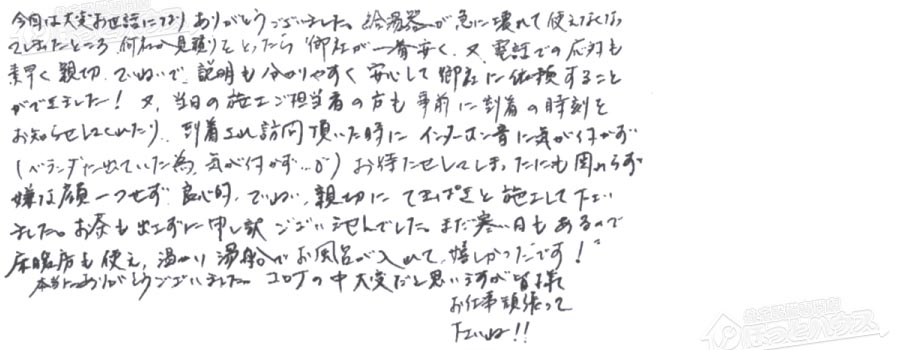 今回は大変お世話になりありがとうございました。給湯器が急に壊れて使えなくなっ
てしまったところ、何社か見積りをとったら御社が一番安く、又、電話での応対も
素早く親切、ていねいで、説明も分かりやすく安心して御社に依頼すること
ができました！又、当日の施工ご担当者の方も事前に到着の時刻を
お知らせしてくれたり、到着され訪問頂いた時にインターホン音に気が付かず
(ベランダに出ていた為、気が付かず…) お待たせしてしまったにも関わらず
嫌な顔一つせず、良心的、ていねい、親切にてきぱきと施工して下さい
ました。お茶も出さずに申し訳ございませんでした。まだ寒い日もあるので
床暖房も使え、温かい湯船でお風呂が入れて、嬉しかったです！
本当にありがとうございました。コロナの中大変だと思いますが皆様
お仕事頑張って
下さいね!!
ほっとハウス